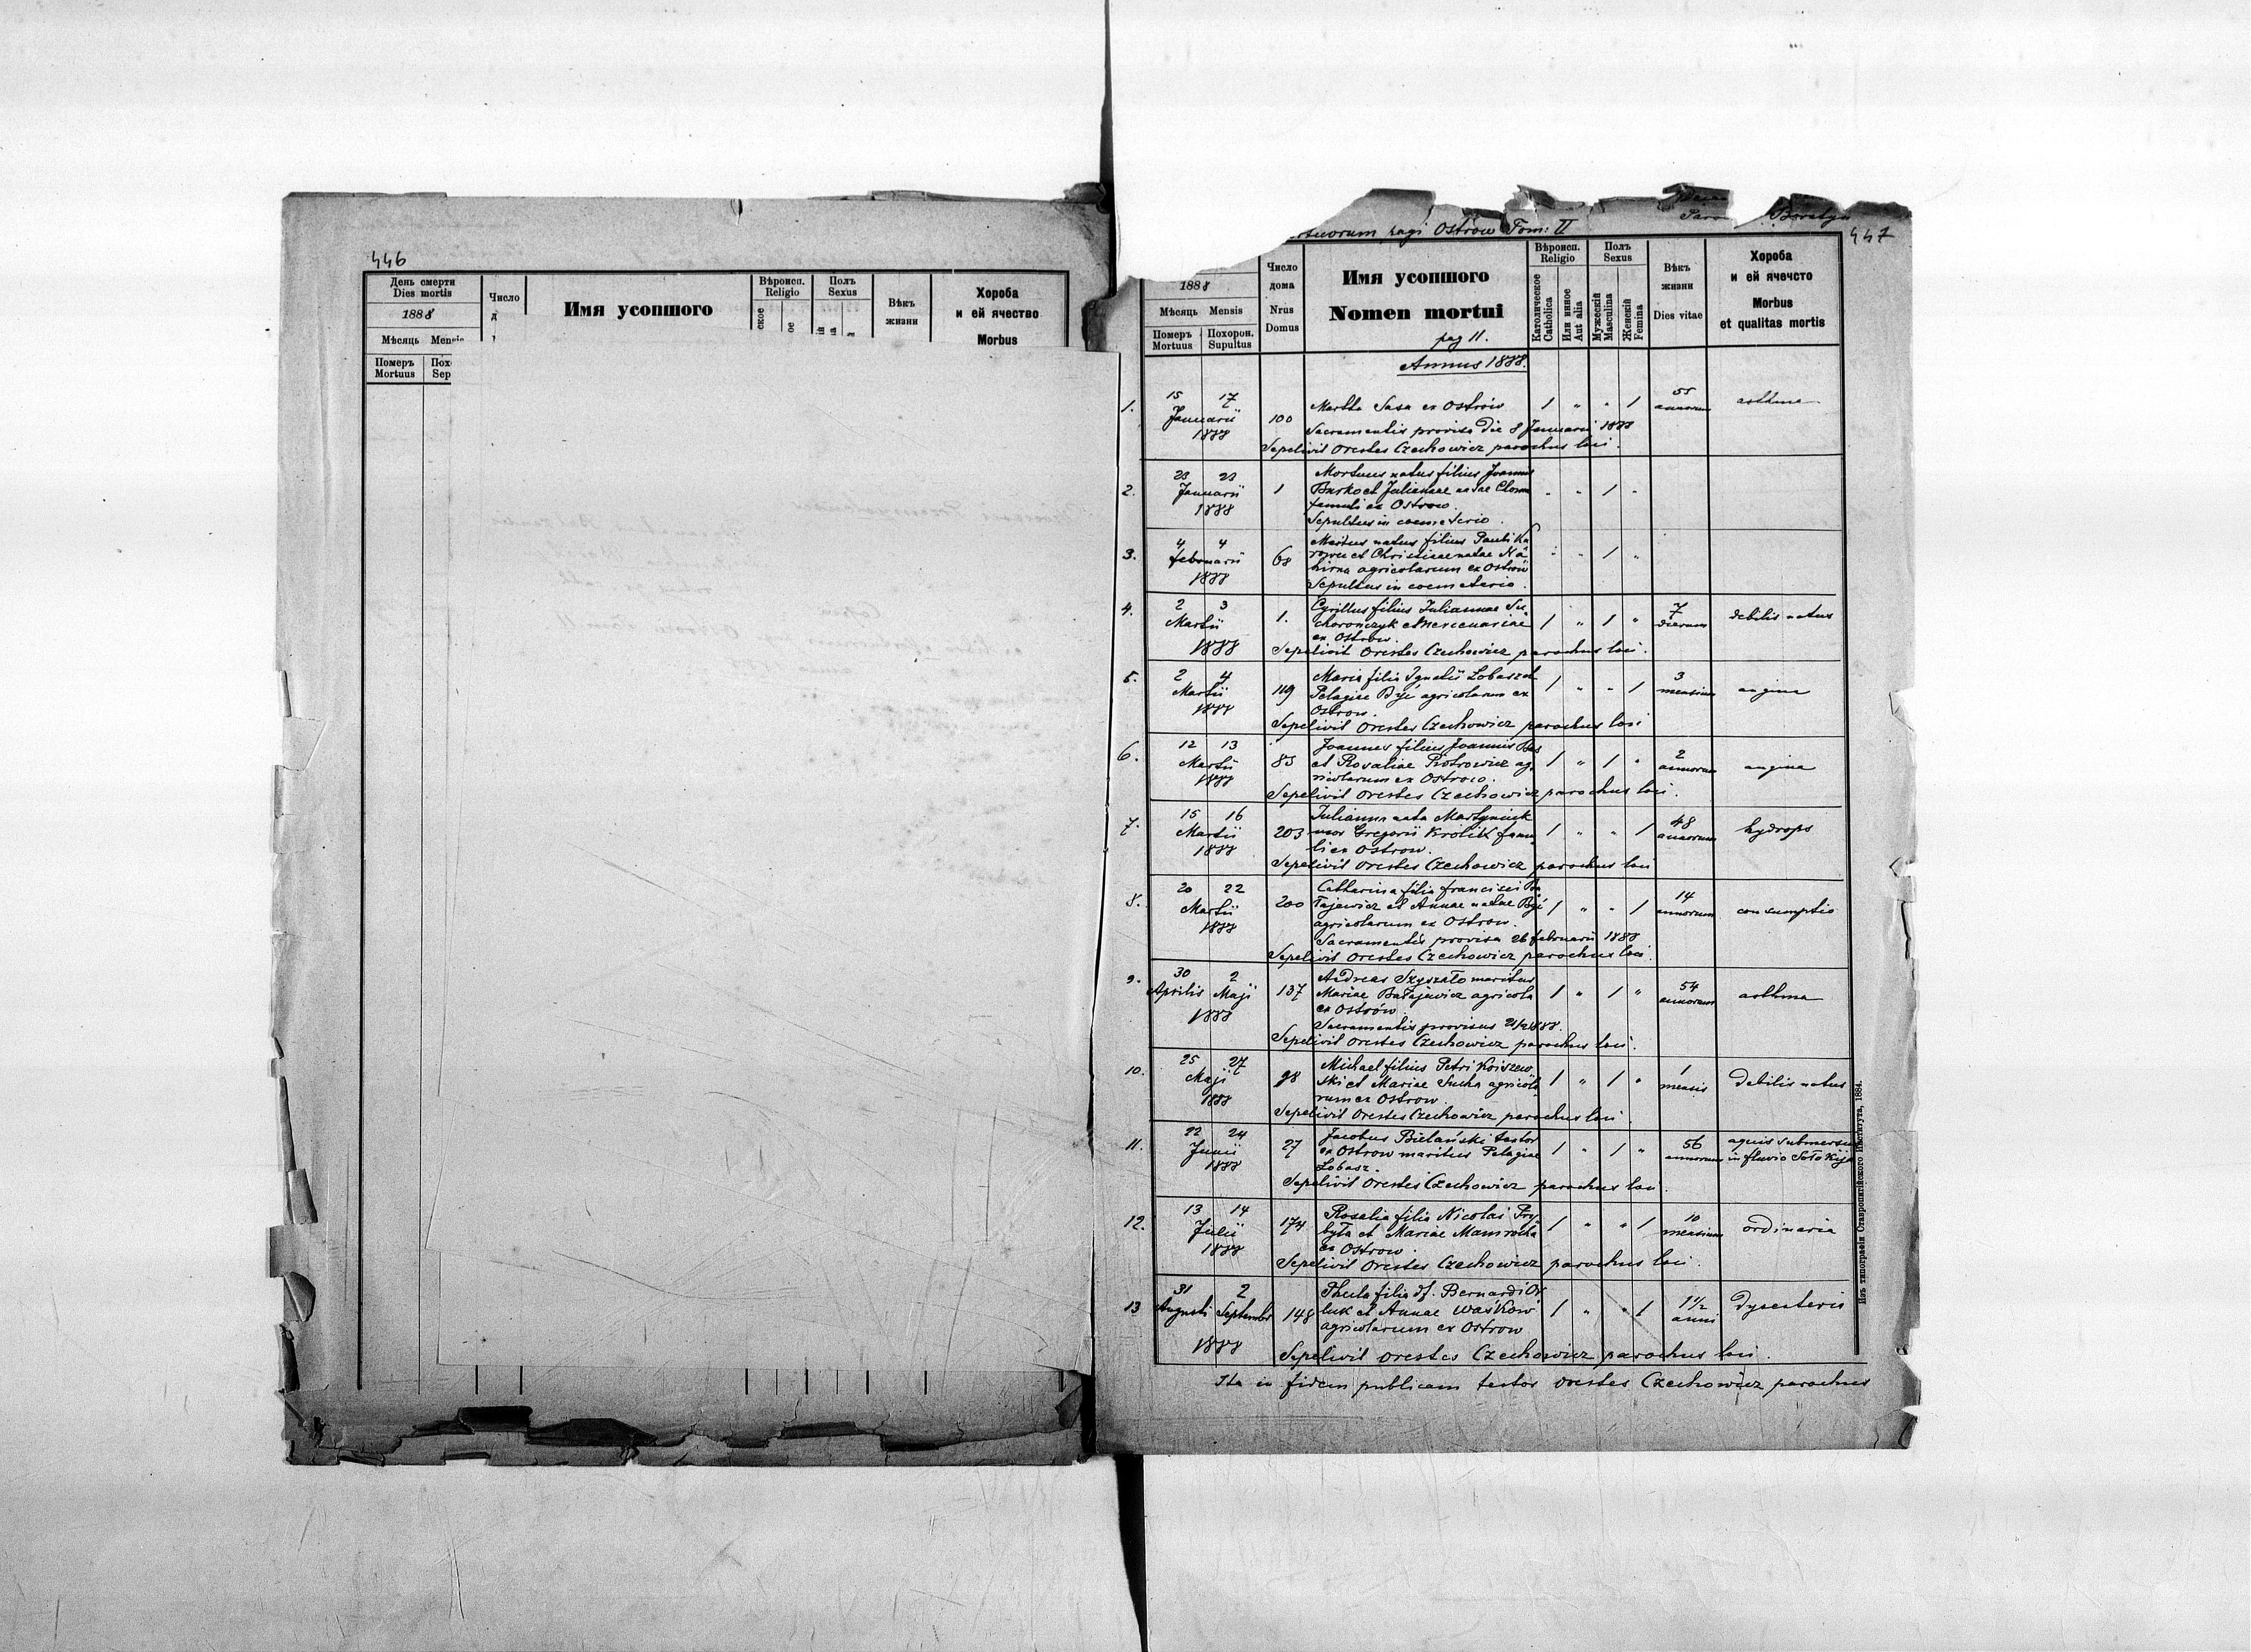 446
День смерти
Dies mortis
1888
Мѣсяць Mensis
Померъ
Mortuus
Пох
Sep
Число
д
Имя усопшого
Вѣроисп.
Religio
ское
ое
Полъ
Sexus
Вѣкъ
жизни
Хороба
и ей ячество
Morbus
pagi Ostrow Tom: II
447
1888
Мѣсяць Mensis
Померъ
Mortuus
Похорон.
Supultus
Число
дома
Nrus
Domus
Имя усопшого
Nomen mortui
pag 11.
Вѣроисп.
Religio
Католическое
Catholica
Или инное
Aut alia
Полъ
Sexus
Мужескій
Masculina
Женскій
Femina
Вѣкъ
жизни
Dies vitae
Хороба
и ей ячечсто
Morbus
et qualitas mortis
Annus 1888.
1. 15 17 Januarii 1888 100 Martha Sasa ex Ostrów 1 " " 1 55 annorum asthma
Sacramentis provisa die 8 Januarii 1888
Sepelivit Orestes Czechowicz parochus loci.
2. 23 23 Januarii 1888 1 Mortuus natus filius Joannis
Burko et Julianae natae
famuli ex Ostrow. " " 1 "
Sepultus in coemeterio.
3. 4 4 februarii 1888 68 natus filius Pauli
et natae
agricolarum ex Ostrów " " 1 "
Sepultus in coemeterio.
4. 2 3 Martii 1888 1. Cyrillus filius Iuliannae Su-
chorończyk mercenariae
ex Ostrow. 1 " 1 " 7 dierum debilis natus
Sepelivit Orestes Czechowicz parochus loci.
5. 2 4 Martii 1888 119 Maria filia Ignatii Lobasz et
Pelagiae Być agricolarum ex
Ostrow. 1 " " 1 3 mensium angina
Sepelivit Orestes Czechowicz parochus loci
6. 12 13 Martii 1888 83 Joannes filius Joannis Bas
et Rosaliae Piotrowicz ag-
ricolarum ex Ostrow. 1 " 1 " 2 annorum angina
Sepelivit Orestes Czechowicz parochus loci.
7. 15 16 Martii 1888 203 Iulianna nata Martyniuk
uxor Gregorii Królik famu-
li ex Ostrow. 1 " " 1 48 annorum hydrops
Sepelivit Orestes Czechowicz parochus loci
8. 20 22 Martii 1888 200 Catharina filia francisci Ba
łajewicz et Annae natae Być
agricolarum ex Ostrow. 1 " " 1 14 annorum consumptio
Sacramentis provisa 26 februarii 1888
Sepelivit Orestes Czechowicz parochus loci.
9. 30 Aprilis 2 Maji 1888 137 Andreas Szyszało maritus
Mariae Bałajewicz agricola
ex Ostrów. 1 " 1 " 54 annorum asthma
Sacramentis provisus 1888.
Sepelivit Orestes Czechowicz parochus loci.
10. 25 27 Maji 1888 98 Michael filius Petri Koiszew
ski et Mariae Sucha agricola
rum ex Ostrow. 1 " 1 " 1 mensis debilis natus
Sepelivit Orestes Czechowicz parochus loci.
11. 22 24 Junii 1888 27 Jacobus Bielański sartor
ex Ostrow maritus Pelagiae
Lobasz. 1 " 1 " 56 annorum aquis submersus
in fluvio Sołokija
Sepelivit Orestes Czechowicz parochus loci.
12. 13 14 Julii 1888 174 Rosalia filia Nicolai Pry
było et Mariae
ex Ostrow. 1 " " 1 10 mensium ordinaria
Sepelivit Orestes Czechowicz parochus loci.
13 31 Augusti 2 Septembr 1888 148 Thecla filia Bernardi Or
luk et Annae Waśków
agricolarum ex Ostrow 1 " " 1 1 1/2 anni Dysenteris
Sepelivit Orestes Czechowicz parochus loci.
Ita in fidem publicam testor Orestes Czechowicz parochus
Изъ типографіи Ставропигійского Института, 1884.